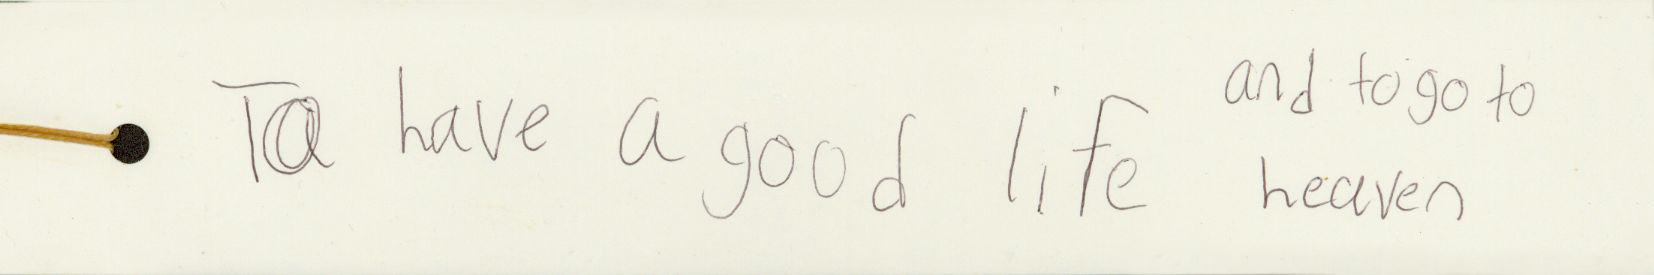 To have a good life and to go to
heaven